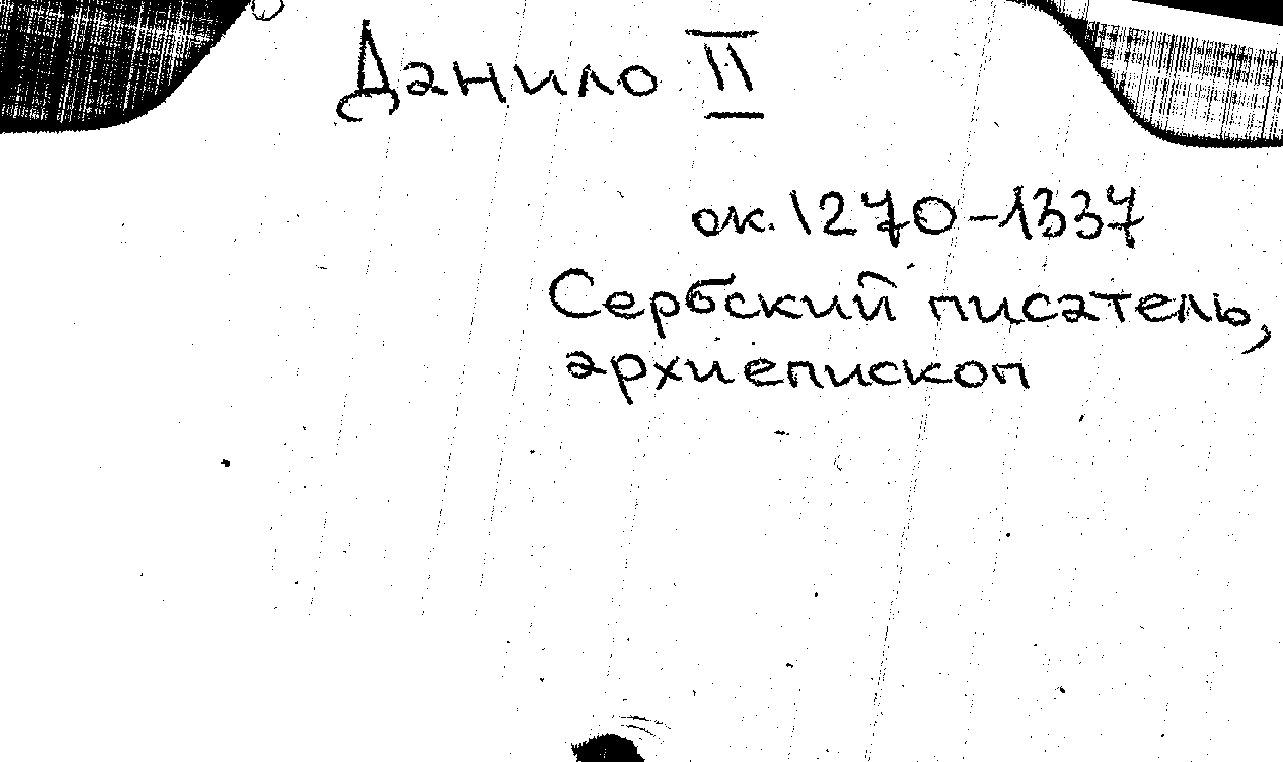 Данило II
ок. 1270-1337
Сербский писатель,
архиепископ